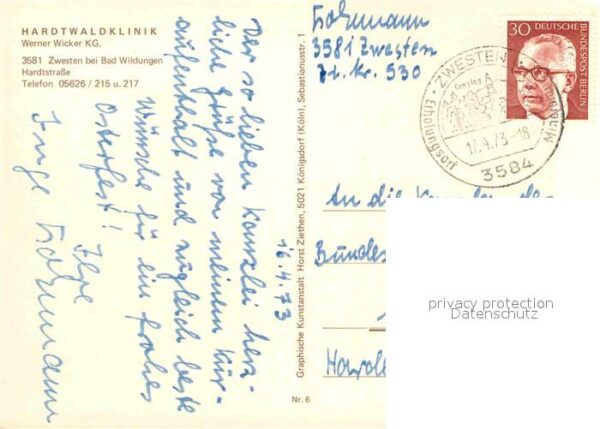 HARDTWALDKLINIK
Werner Wicker KG.
3581 Zwesten bei Bad Wildungen
Hardtstraße
Telefon 05626 / 215 u. 217
Der so lieben Kanzlei herz-
liche Grüße von meinem Kur-
aufenthalt und zugleich beste
Wünsche für ein frohes
Osterfest!
Ihre
Inge
16.4.73
Graphische Kunstanstalt Horst Ziethen, 5021 Königsdorf (Köln), Sebastianusstr. 1
Nr. 6
3581 Zwesten
Zi. Nr. 530
30 DEUTSCHE BUNDESPOST BERLIN
ZWESTEN
Erholungsort
17.4.73-18
3584
An die
Bundes
privacy protection
Datenschutz